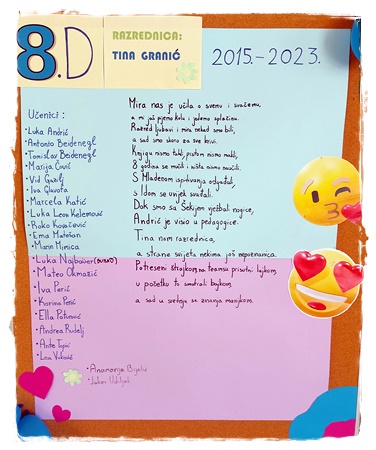 8.D
RAZREDNICA:
TINA GRANIĆ
2015.-2023.
Učenici:
• Luka Andrić
• Antonio Beidenegl
• Tomislav Beidenegl
• Marija Čović
• Vid Gavelj
• Iva Glavota
• Marcela Katić
• Luka Leon Kelemović
• Roko Kovačević
• Ema Matešan
• Marin Mimica
• Luka Najbauer
• Mateo Okmažić
• Iva Perić
• Karina Perić
• Ella Potirović
• Andrea Rudelj
• Ante Topić
• Lea Vuković
• Anamarija Bijelić
• Luka
Mira nas je učila o svemu i svačemu,
a mi još pijemo kolu i jedemo oplačinu.
Razred ljubavi i mira nekad smo bili,
a sad smo skoro za sve krivi.
Knjigu nismo takli, piston nismo makli,
8 godina se mučili i ništa nismo naučili.
S Mladenom ispitivanja odgađat,
s Idom se uvijek svađati.
Dok smo sa Šekijem vježbal nogice,
Andrić je visio u pedagogice.
Tina nam razrednica,
a strane svijeta nekima još nepoznanica.
Potreseni štrajkom, na teamsu prisutni lajkom,
u početku to smatrali bajkom,
a sad u srednju se zivanja manjkom.